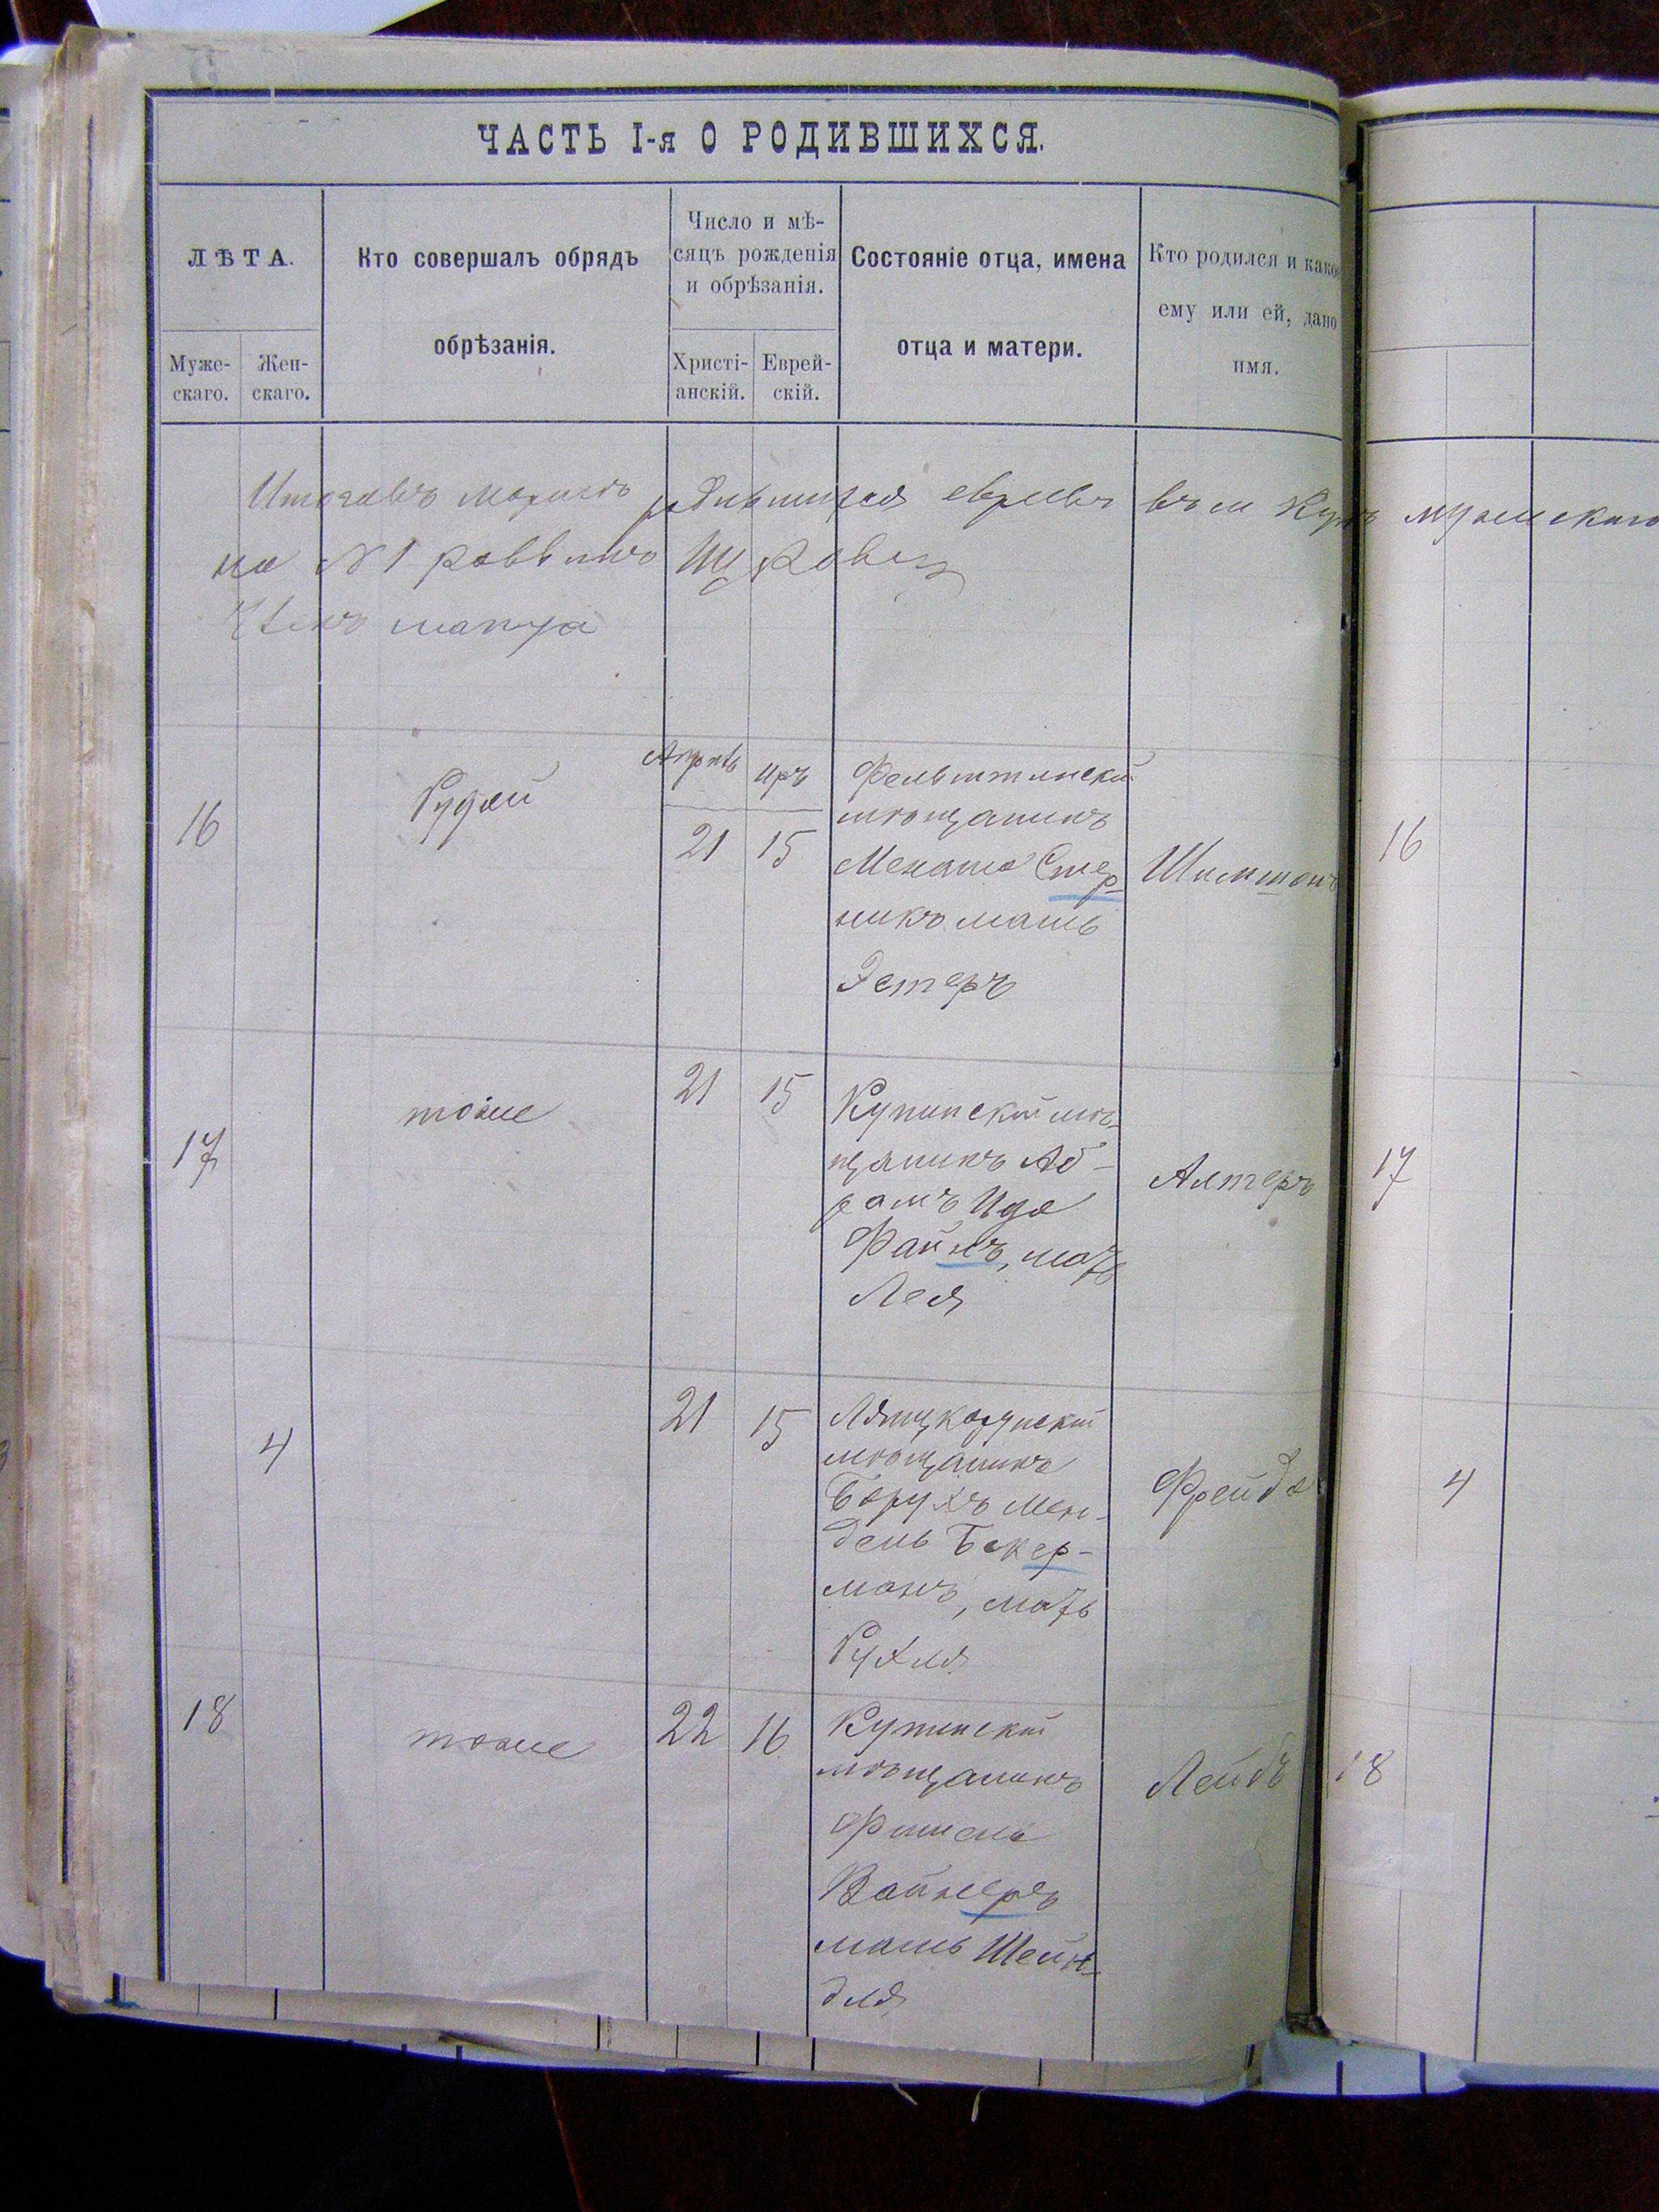 ЧАСТЬ I-я О РОДИВШИХСЯ.
ЛѢТА.
Муже-
скаго.
Жен-
скаго.
Кто совершалъ обрядъ
обрѣзанія.
Число и мѣ-
сяцъ рожденія
и обрѣзанія.
Христі-
анскій.
Еврей-
скій.
Состояніе отца, имена
отца и матери.
Кто родился и какое
ему или ей, дано
имя.
родившихся евреевъ
на № 1 раввинъ
16
Рудой
Апрѣль
Иръ
21
15
Фельштинскій
мѣщанинъ
Менаша Стер-
никъ мать
Эстеръ
Шимшонъ
16
17
тоже
21
15
Купинскій мѣ-
щанинъ Аб-
рамъ Ида
Файнъ, мать
Лея
Алтеръ
17
4
21
15
Лянцкорунскій
мѣщанинъ
Борухъ Мен-
дель Бекер-
манъ, мать
Рухля
Фрейда
4
18
тоже
22
16
Купинскій
мѣщанинъ
Фишель
Вайнеръ
мать Шейн-
для
Лейбъ
18